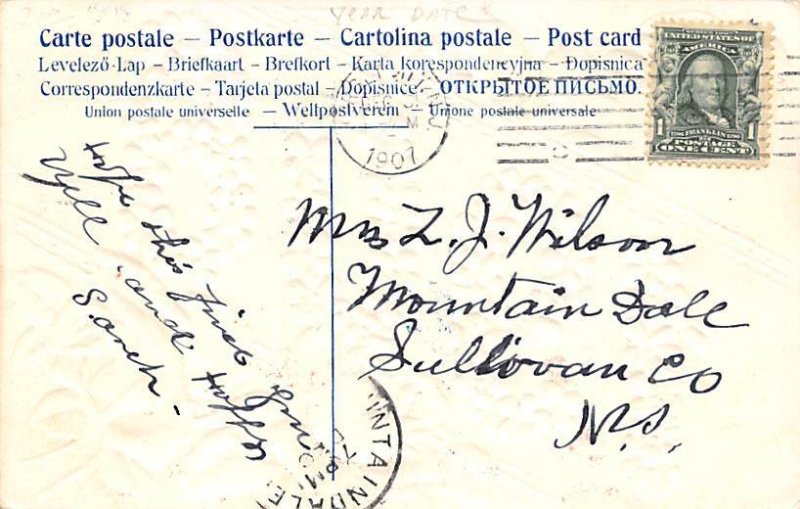 YEAR DATE
Carte postale — Postkarte — Cartolina postale — Post card
Levelező-Lap — Briefkaart — Brefkort — Karta korespondencyjna — Dopisnica
Correspondenzkarte — Tarjeta postal — Dopisnice. ОТКРЫТОЕ ПИСЬМО.
Union postale universelle — Weltpostverein — Unione postale universale
1907
UNITED STATES OF
AMERICA
FRANKLIN
POSTAGE
1 1
ONE CENT
hope this finds you
well and happy
Sarah.
Mrs L. J. Wilson
Mountain Dale
Sullivan Co
N.Y.
NTAINDALE